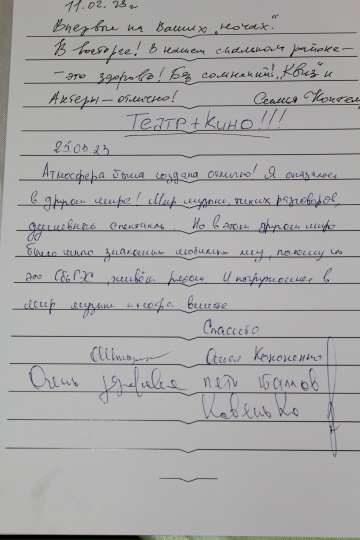 11.02.23г
Впервые на Ваших "ночах".
В восторге! В нашем спальном районе-
- это здорово! Без сомнений! "Квиз" и
Актеры - отлично! Семья
Театр + Кино!!!
25.03.23
Атмосфера была создана отлично! Я оказался
в другом мире! Мир музыки, тихих разговоров,
душевный спектакль. Но в этом другом мире
было что знакомым любимым мне, потому что
это живём рядом и погружаемся в
мир музыки и театра вместе
Спасибо
Алися Кононенко
Очень удивился петь